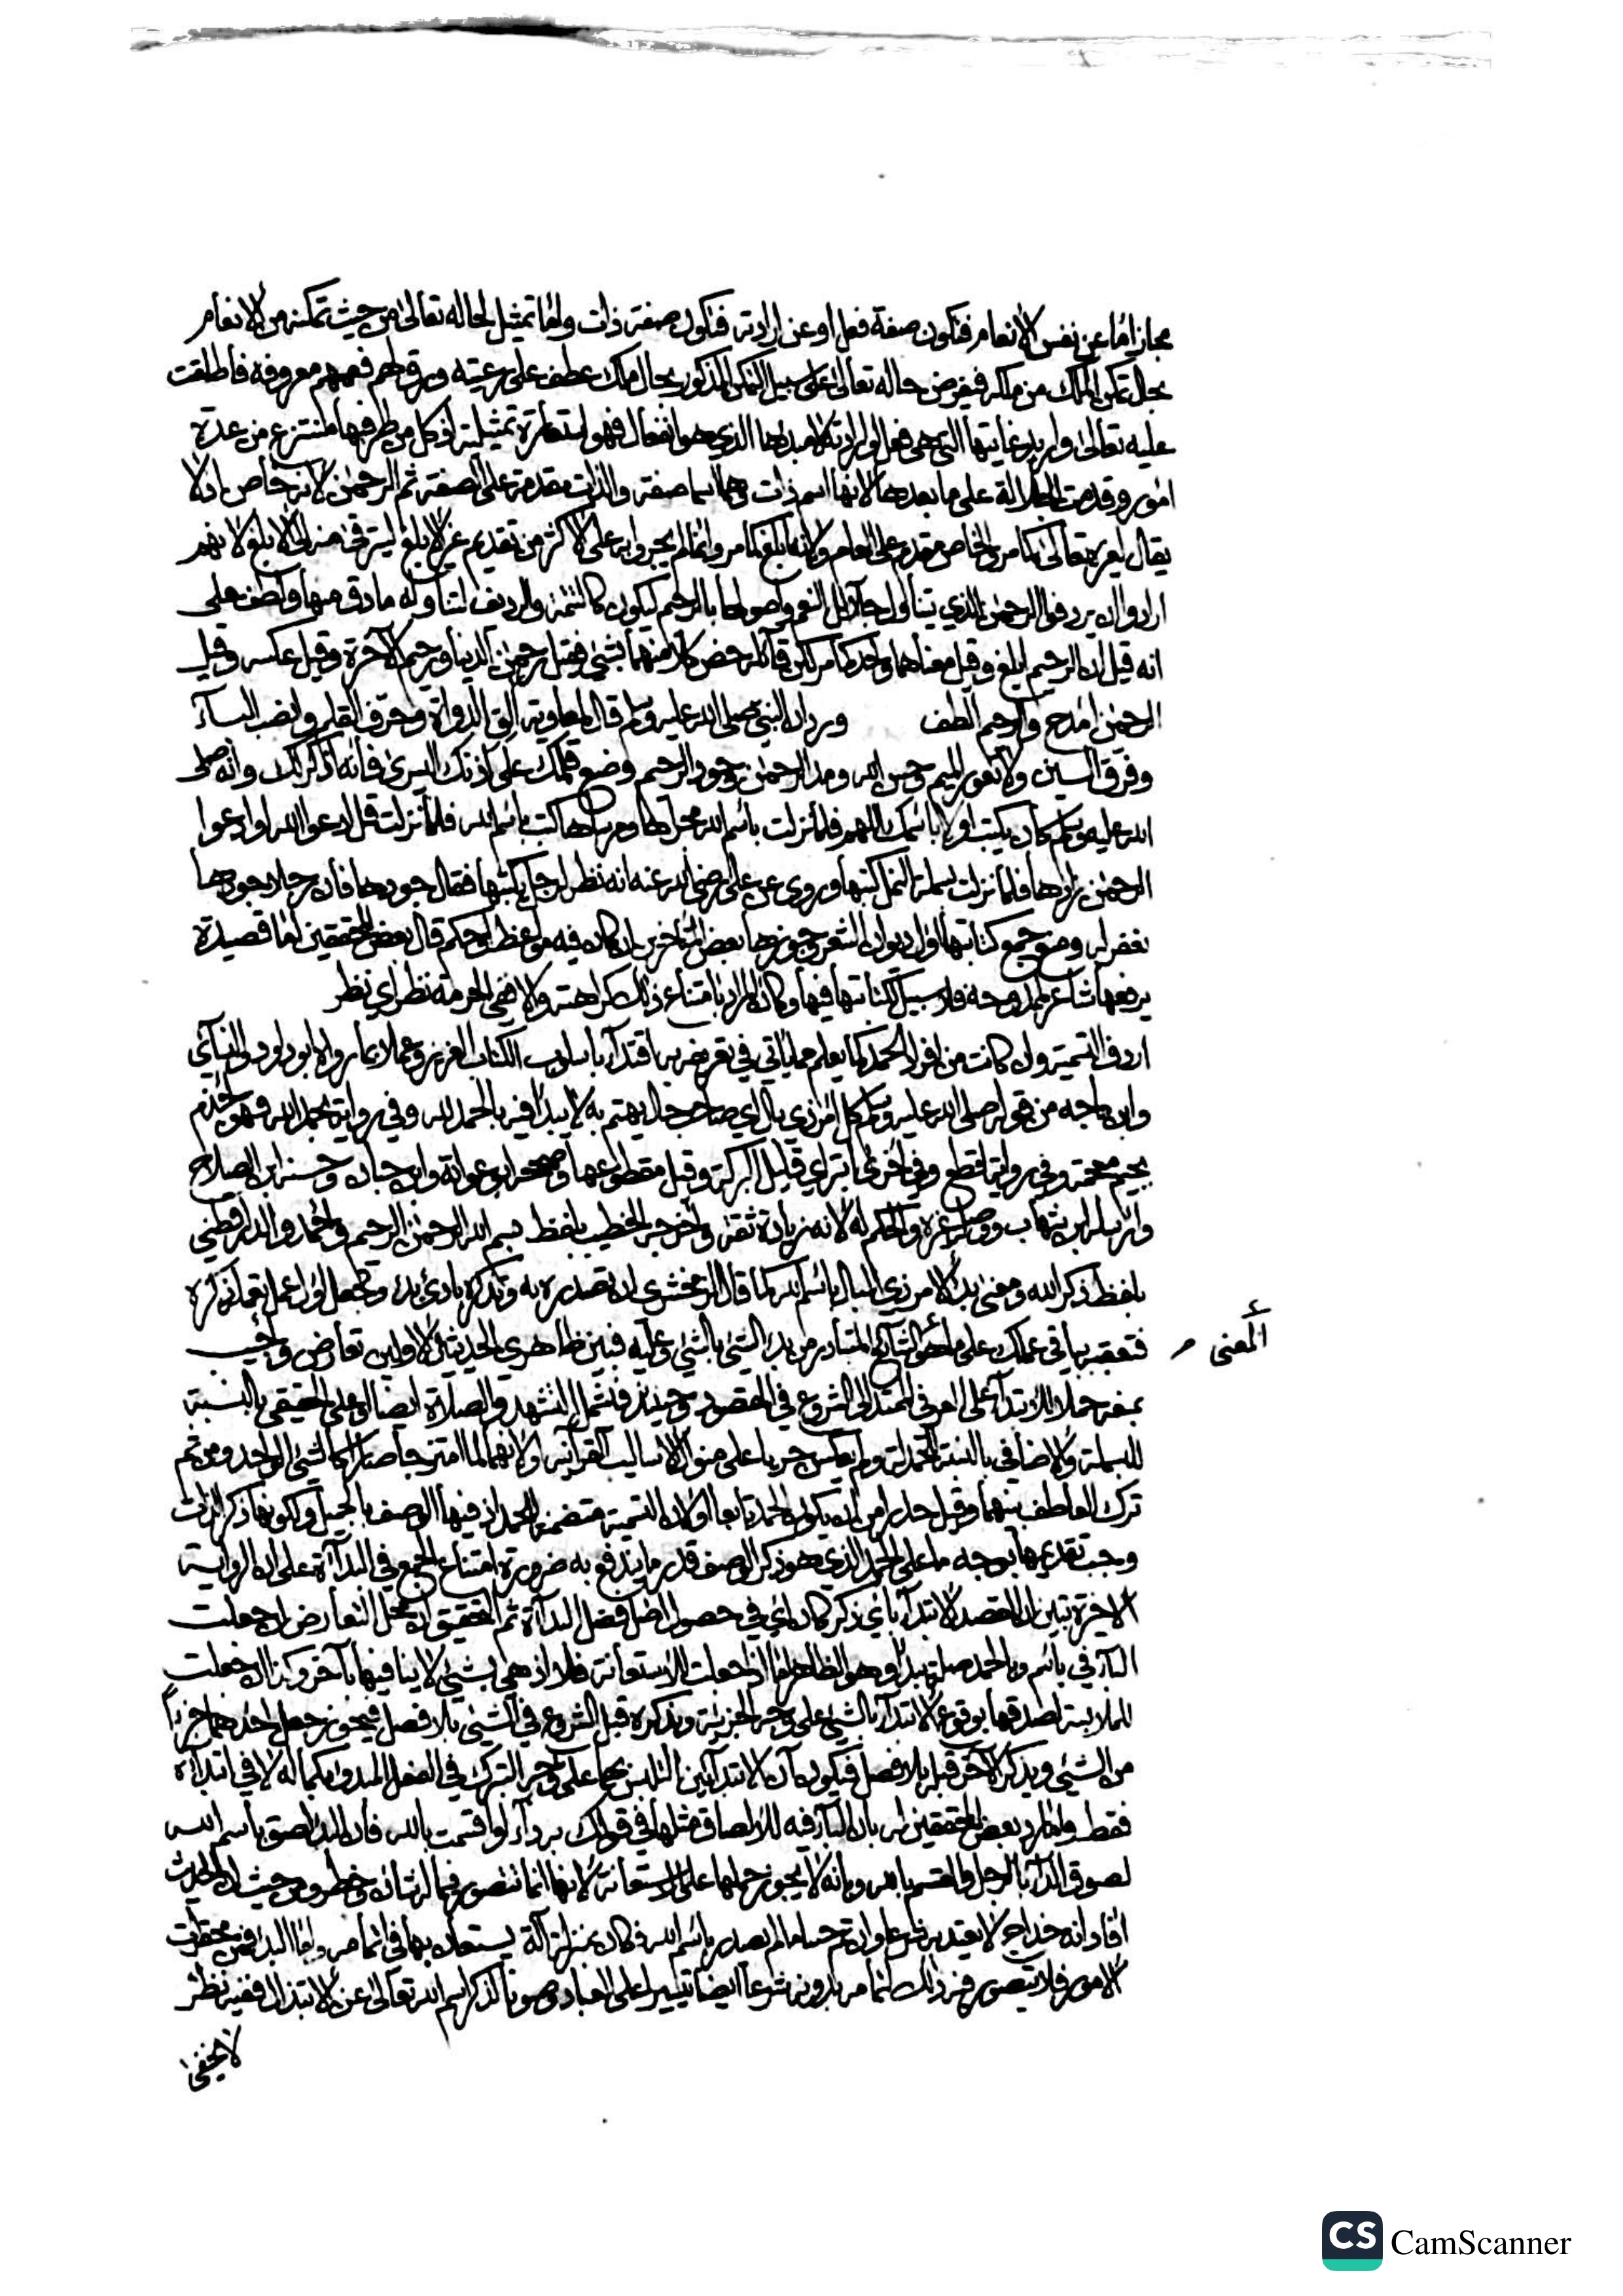 مجاز اما عن نفس الانعام فتكون صفة فعل او عن ارادته فتكون صفة ذات واما تمثيل لحاله تعالى من حيث تمكنه من الانعام
بحال تمكن الملك من ملكه فيفرض حاله تعالى على سبيل التمكن المذكور بحال ملك عطف على رعيته ورق لهم فعمهم معروفه فأطلقت
عليه تعالى واريد غايتها التى هى فعل او ارادة لا مبدؤها الذي هو انفعال فهو استعارة تمثيلية اذ كل من طرفيها منتزع من عدة
امور وقدمت الجلالة على ما بعدها لانها اسم ذات وهما اسما صفة والذات مقدمة على الصفة ثم الرحمن لانه خاص اذ لا
يقال لغيره تعالى كما مر والخاص مقدم على العام ولانه ابلغ كما مر وانما لم يجروا به على الاكثر من تقديم غير الابلغ ليترقى منه الى الابلغ لانهم
ارادوا ان يردفوا الرحمن الذي يتناول جلائل النعم واصولها بالرحيم ليكون كالتتمة والرديف لتناوله ما دق منها ولطف على
انه قيل ان الرحيم ابلغ وقيل معناهما واحد كما مر لكن قائله خص كلا منهما بشئ فقيل رحمن الدنيا ورحيم الآخرة وقيل عكسه وقيل
الرحمن امدح والرحيم الطف ورد ان النبي صلى الله عليه وسلم قال لمعاوية الق الدواة وحرف القلم وانصب الباء
وفرق السين ولا تعور الميم وحسن الله ومد الرحمن وجود الرحيم وضع قلمك على اذنك اليسرى فانه اذكر لك وانه صلى
الله عليه وسلم كان يكتب اولا باسمك اللهم فلما نزلت باسم الله مجراها ومرساها كتب باسم الله فلما نزلت قل ادعوا الله او ادعوا
الرحمن زادها فلما نزلت بسملة النمل كتبها وروى عن على رضى الله عنه انه نظر لرجل يكتبها فقال جودها فان رجلا جودها
فغفر له ومنع جمع كتابتها اول ديوان الشعر وجوزها بعض المتأخرين ان كان فيه مواعظ او حكم قال بعض المحققين اما قصيدة
يرفعها شاعر لممدوحه فلا سبيل لكتابتها فيها وكان المراد بامتناع ذلك كراهته والا ففى الحرمة نظر اي نظر
اردف التسمية وان كانت من افراد الحمد كما يعلم مما يأتي في تعريفه به اقتداء باسلوب الكتاب العزيز وعملا بما رواه ابو داود والنسائي
وابن ماجه من قوله صلى الله عليه وسلم كل امر ذي بال اي صاحب حال يهتم به لا يبدأ فيه بالحمد لله وفي رواية بحمد الله فهو اجذم
بجيم ومعجمة وفي رواية اقطع وفي اخرى ابتر اي قليل البركة وقيل مقطوعها وصححه ابو عوانة وابن حبان وحسنه ابن الصلاح
وارسله ابن شهاب ووصله غيره والحكم له لانه زيادة ثقة واخرجه الخطيب بلفظ بسم الله الرحمن الرحيم واحمد والدارقطني
بلفظ ذكر الله ومعنى بدء الامر ذي البال باسم الله كما قال الزمخشري ان تصدره به وتذكره بادئ بدء وتجعل اول عملك تذكره
فتعقبه بباقي عملك على ما هو الشائع المتبادر من بدء الشئ بالشئ وعليه فبين ظاهري الحديثين الاولين تعارض واجيب
المعنى
بمنعه حملا للابتداء على العرفي الممتد الى الشروع في المقصود وحينئذ فتشمل التشهد والصلاة ايضا او على الحقيقي بالنسبة
للبسملة والاضافي بالنسبة للحمدلة ولم يعكس جريا على منوال الاساليب القرآنية ولانهما لما امتزجا صارا كالشئ الواحد ومن ثم
ترك العاطف بينهما وقيل حذرا من ان يكون الحمد تابعا اولان التسمية متضمنة للحمد اذ فيها الوصف بالجميل ولكونها ذكر الذات
وجب تقديمها بوجه ما على الحمد الذي هو ذكر الوصف قدر ما يندفع به ضرورة امتناع الجمع في البداءة على ان الرواية
الاخيرة تبين ان القصد الابتداء باي ذكر كان اي في حصول اصل فضل البداءة ثم التحقيق ان محل التعارض ان جعلت
الباء في باسم وبالحمد صلة يبدأ وهو الظاهر اما اذا جعلت للاستعانة فلا اذ هي بشئ لا ينافيها بآخر وكذا ان جعلت
للملابسة لصدقها بوقوع الابتداء بالشئ على وجه الجزئية وبذكره قبل الشروع في الشئ بلا فصل فيجوز جعل احدهما جزءا
من الشئ ويذكر الآخر قبله بلا فصل فيكون آن الابتداء آن التلبس بهما على وجه التبرك في الفعل المبدوء بكماله لا في ابتدائه
فقط واما رد بعض المحققين له بان الباء فيه للالصاق مثلها في قولك به داء او اقسمت بالله فان البدء لصق باسم الله
لصوق الداء بالرجل والقسم بالله وبانه لا يجوز حملها على الاستعانة لانها انما تتصور فيما له شأن وخطر ومن حيث ان الحديث
افاد انه خداج لا يعتد به شرعا وان تم حسا ما لم يصدر باسم الله فكان بمنزلة آلة يستعان بها في اتمامه واما البدء في محقرات
الامور فلا يتصور فيه ذلك لتمامه بدونه شرعا ايضا تيسيرا على العباد وصونا لذكر اسم الله تعالى عن الابتذال ففيه نظر
لا يخفى
CS CamScanner